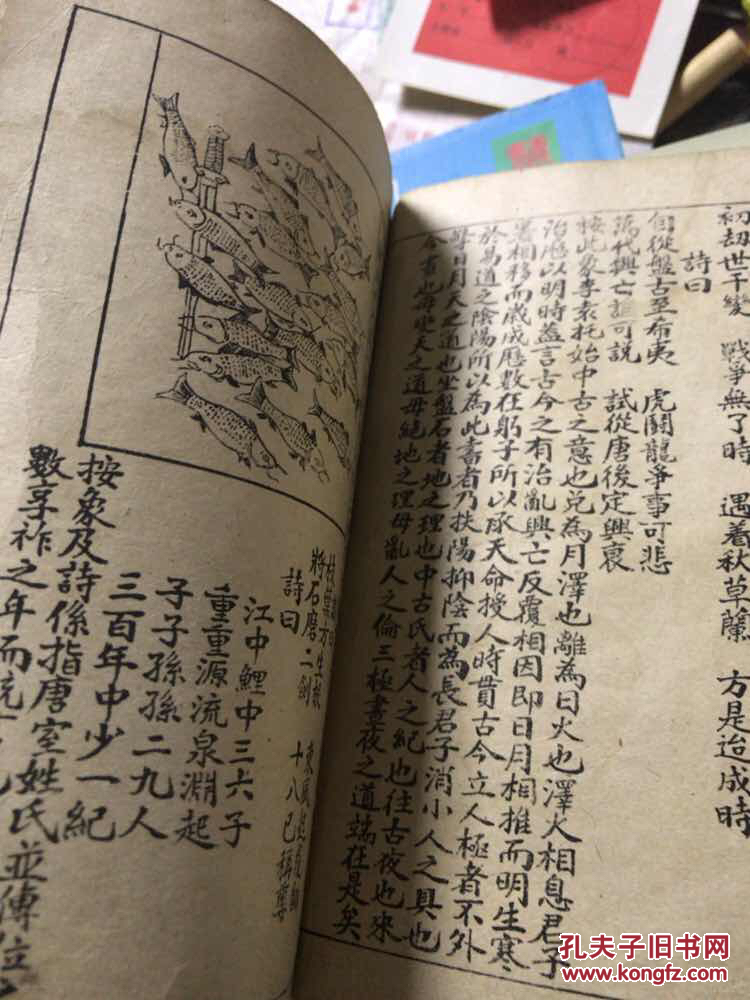 初劫世千變　戰爭無了時　遇着秋草蘭　方是迨成時
詩曰
自從盤古至希夷　虎鬪龍爭事可悲
萬代興亡誰可說　試從唐後定興衰
按此象李袁托始中古之意也兌為月澤也離為日火也澤火相息君子
治厯以明時葢言古今之有治亂興亡反覆相因即日月相推而明生寒
暑相移而歲成厯數在躬子所以承天命授人時貫古今立人極者不外
於易道之陰陽所以為此書者乃扶陽抑陰而為長君子消小人之具也
每日月天之道也坐盤石者地之理也中古氏者人之紀也往古夜也來
今晝也毋變天之道毋絕地之理毋亂人之倫三極晝夜之道端在是矣
枝葉方生根
將石磨二劍　十八已稱尊
詩曰
江中鯉中三六子
重重源流泉淵起
子子孫孫二九人
三百年中少一紀
按象及詩係指唐室姓氏並傳位
數享祚之年而
孔夫子旧书网
www.kongfz.com